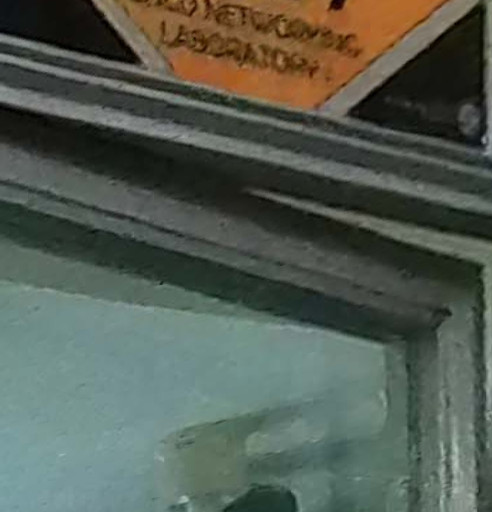 NETWORKING
LABORATORY